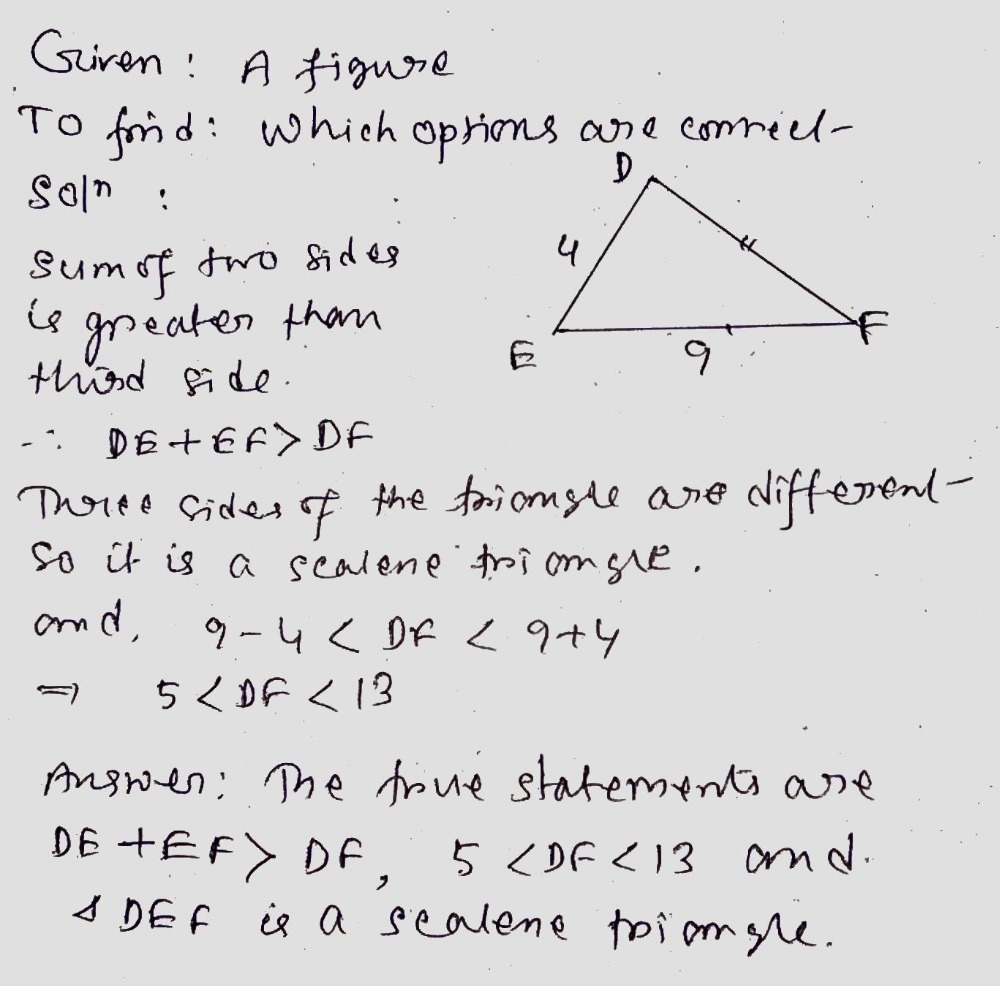 Given : A figure
To find : Which options are correct
Soln :
D
Sum of two sides
4
is greater than
F
E
9
third side.
∴ DE + EF > DF
Three sides of the triangle are different
So it is a scalene triangle.
and, 9 - 4 < DF < 9 + 4
⇒ 5 < DF < 13
Answer : The true statements are
DE + EF > DF, 5 < DF < 13 and
Δ DEF is a scalene triangle.